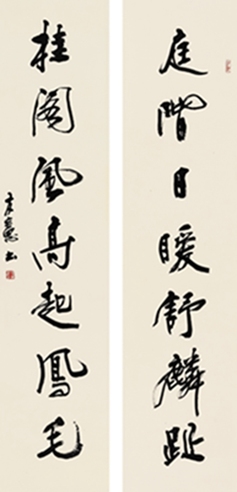 庭階日暖舒麟趾
桂阁風高起鳳毛